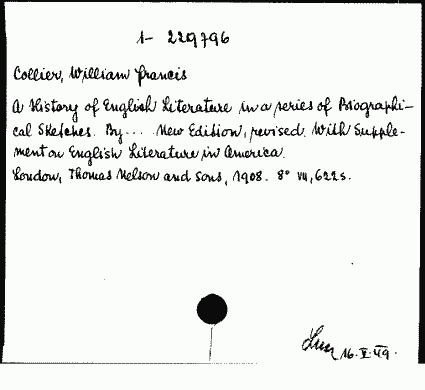 1- 229796
Collier, William Francis
A History of English Literature in a series of Biographi-
cal Sketches. By... New Edition, revised. With Supple-
ment on English Literature in America.
London, Thomas Nelson and Sons, 1908. 8° VII, 622 s.
16.V.49.